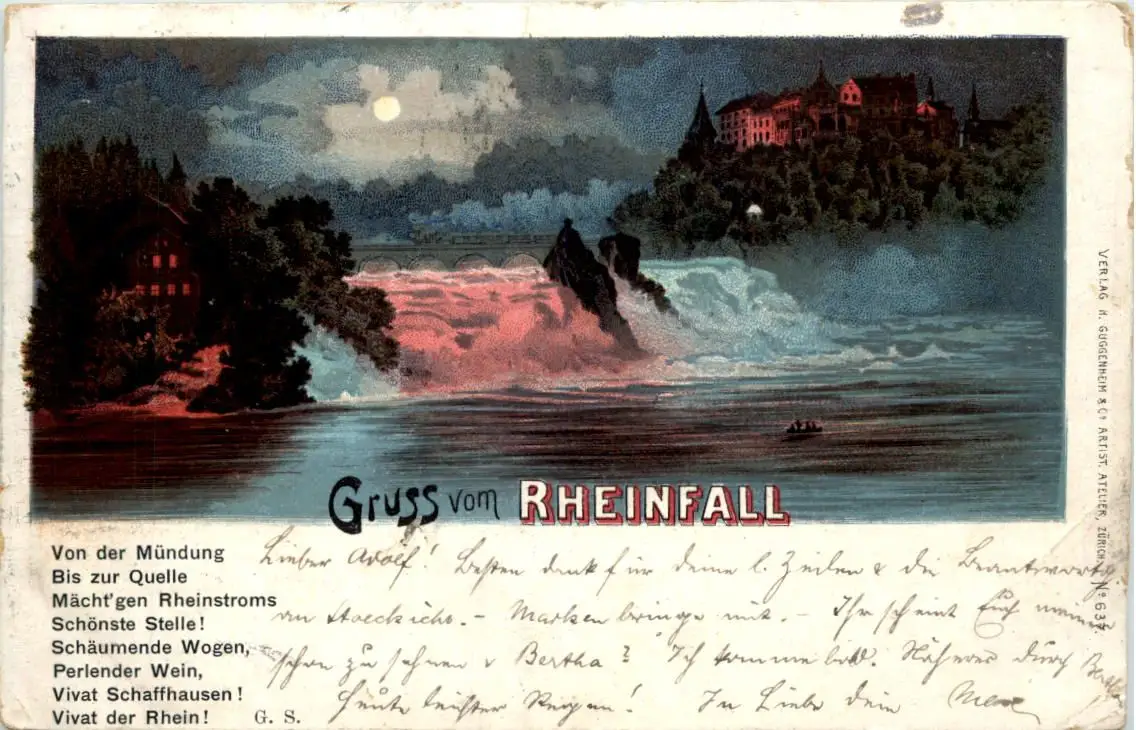 Gruss vom RHEINFALL
Von der Mündung
Bis zur Quelle
Mächt'gen Rheinstroms
Schönste Stelle!
Schäumende Wogen,
Perlender Wein,
Vivat Schaffhausen!
Vivat der Rhein! G. S.
Lieber Adolf! Besten dank für deine l. Zeilen & die Beantwortg
an . - Marken bringe mit. - Ihr scheint Euch
schon zu sehnen Bertha? Ich komme bald. Näheres durch
Heute leichter Regen! In Liebe dein
VERLAG H. GUGGENHEIM & Co ARTIST. ATELIER, ZÜRICH No 637.